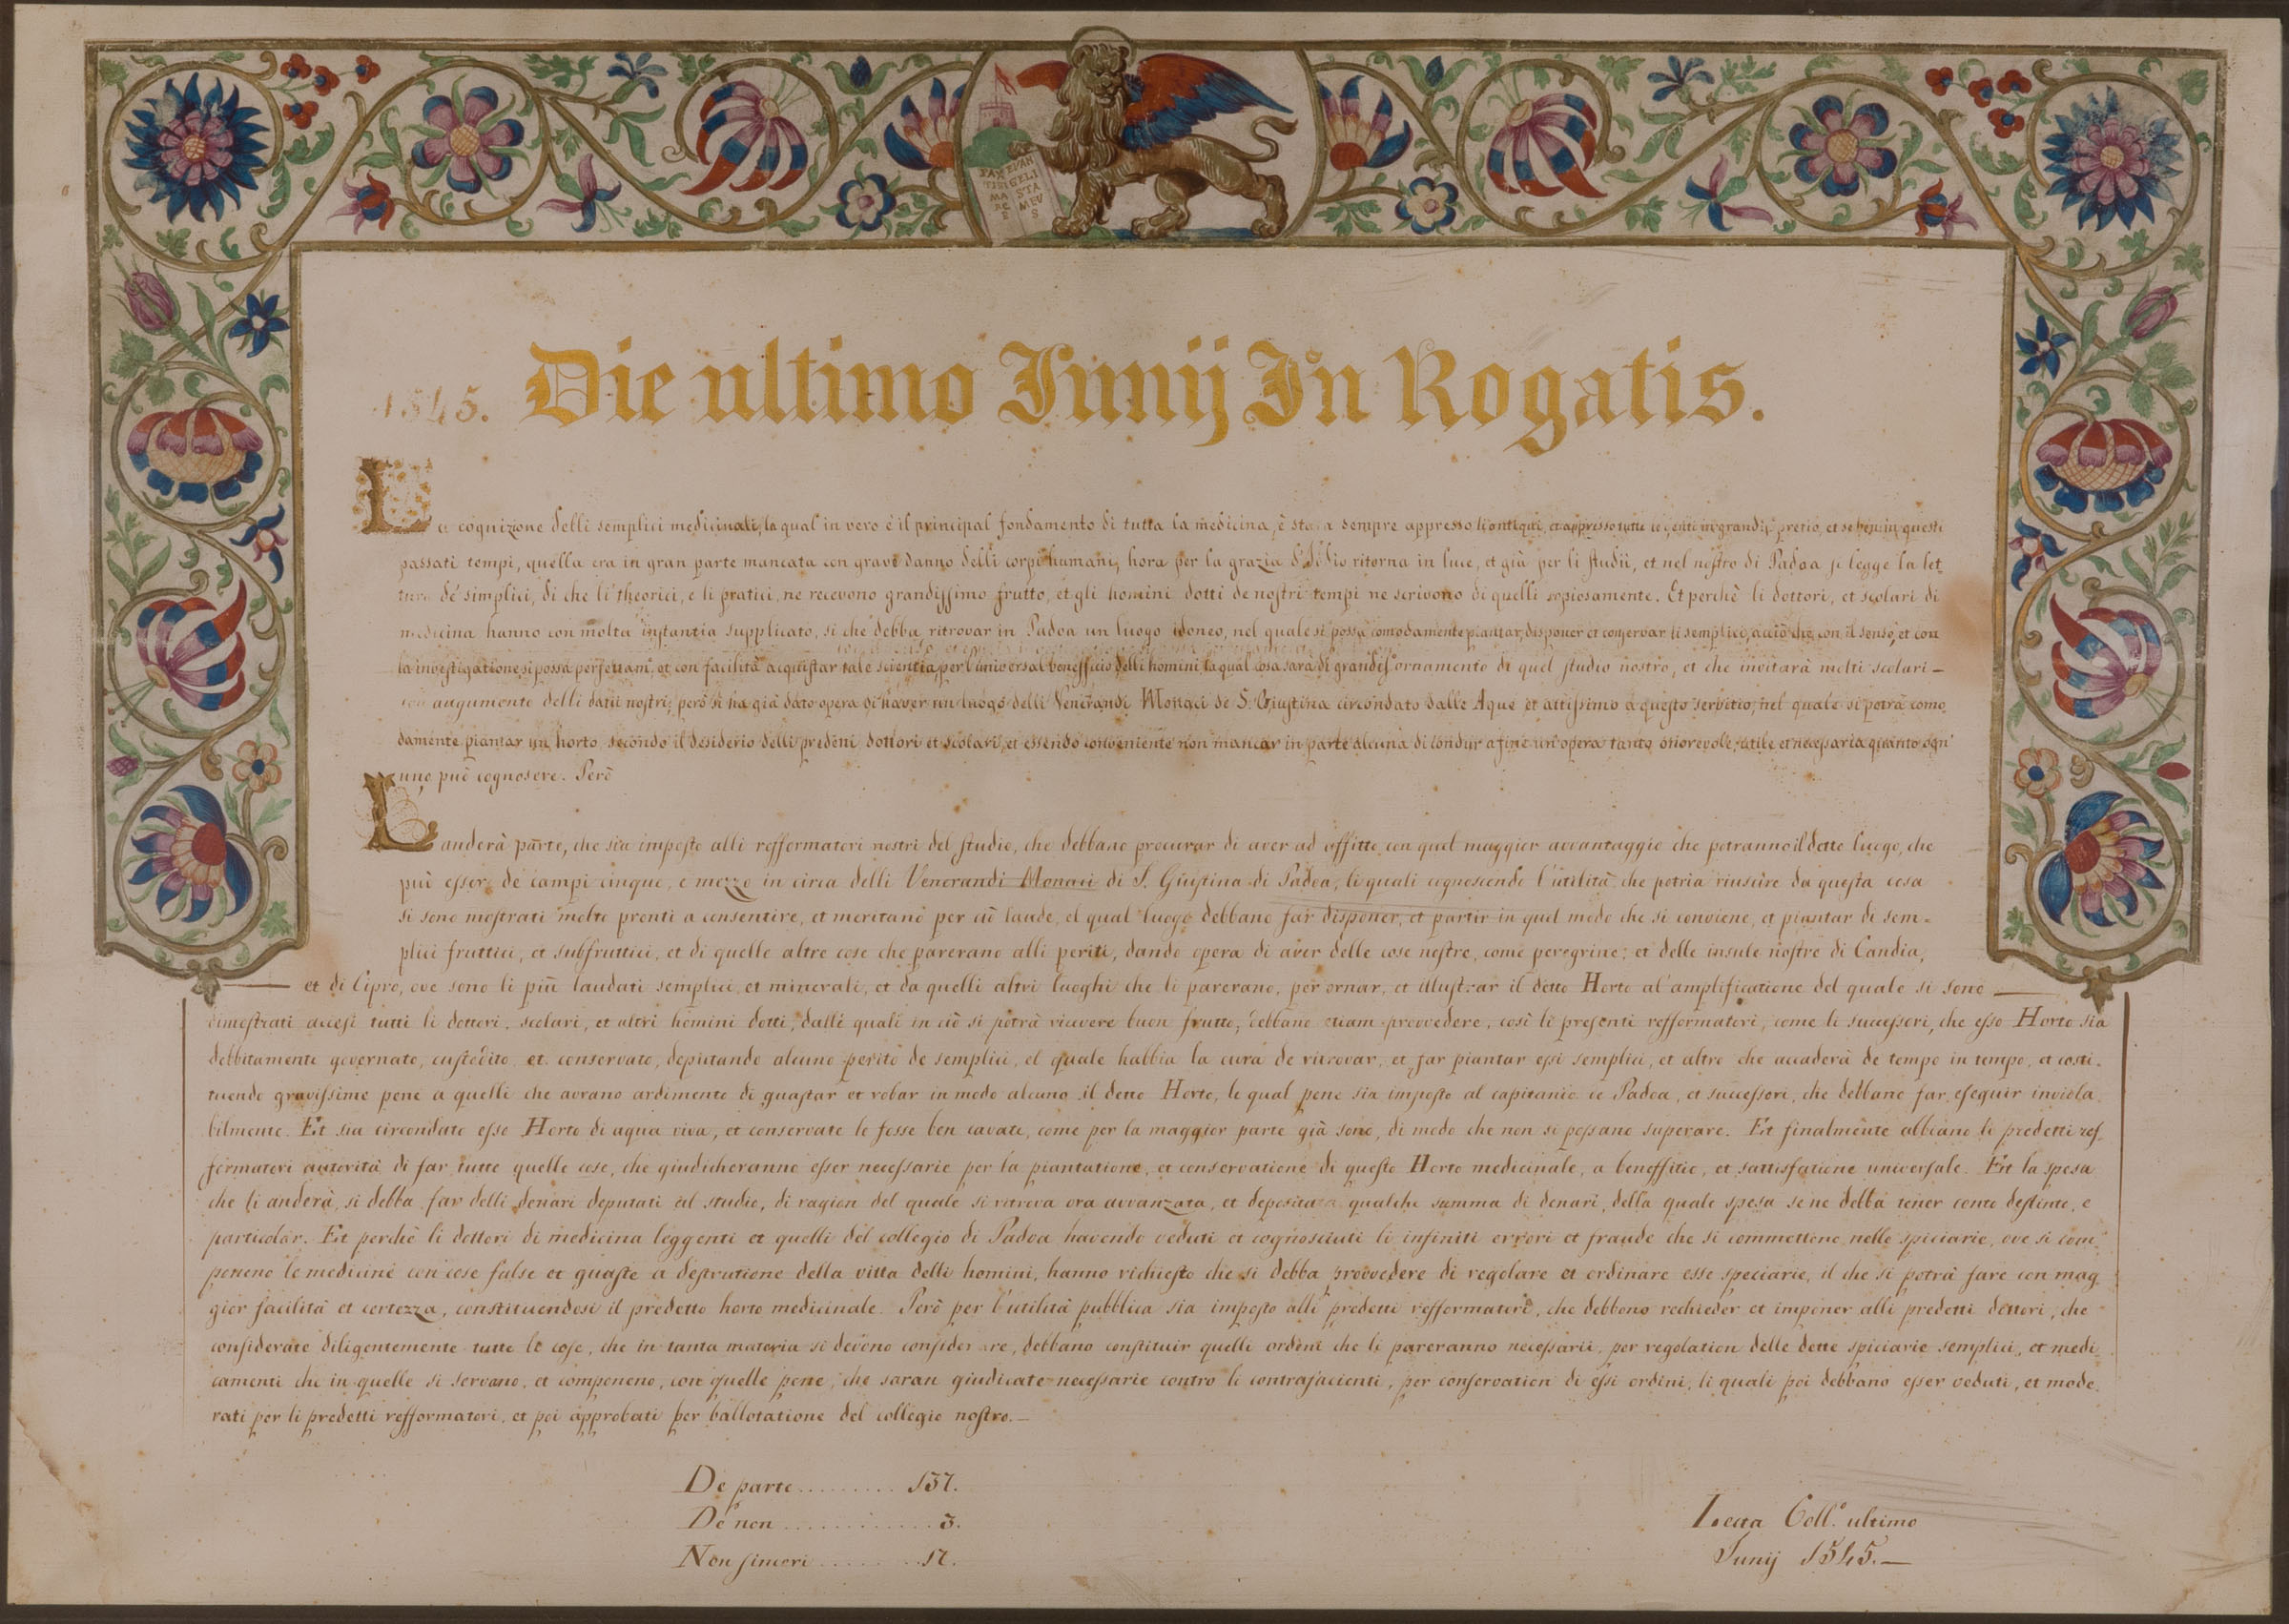 PAX EVAN
TIBI GELI
MAR STA
CE MEV
S S
1545. Die ultimo Junij In Rogatis.
La cognizione delli semplici medicinali, la qual in vero è il principal fondamento di tutta la medicina, è stata sempre appresso li antiqui, et appresso tutte le genti in grandis. pretio, et se ben in questi
passati tempi, quella era in gran parte mancata con grave danno delli corpi humani, hora per la grazia d'Iddio ritorna in luce, et già per li studii, et nel nostro di Padoa si legge la let-
tura de' simplici, di che li theorici, e li pratici, ne recevono grandissimo frutto, et gli homini dotti de nostri tempi ne scrivono di quelli copiosamente. Et perchè li dottori, et scolari di
medicina hanno con molta instantia supplicato, si che debba ritrovar in Padoa un luogo idoneo, nel quale si possa comodamente piantar, disponer et conservar li semplici, acciò che con il senso, et con
la investigatione si possa perfettam.e et con facilità acquistar tale scientia, per l'universal beneffitio delli homini la qual cosa sarà di grandis.o ornamento di quel studio nostro, et che invitarà molti scolari –
con augumento delli datii nostri, però si ha già dato opera di haver un luogo delli Venerandi Monaci de S. Giustina circondato dalle Aque et attissimo a questo servitio, nel quale si potrà como
damente piantar un horto secondo il desiderio delli predetti dottori et scolari, et essendo conveniente non mancar in parte alcuna di condur a fine un'opera tanto onorevole, utile et necessaria quanto ogn'
uno può cognoscere. Però
L'anderà parte, che sia imposto alli refformatori nostri del studio, che debbano procurar di aver ad affitto con quel maggior avvantaggio che potranno il detto luogo, che
può esser de campi cinque, e mezzo in circa delli Venerandi Monaci di S. Giustina di Padoa, li quali cognoscendo l'utilità, che potria riuscire da questa cosa
si sono mostrati molto pronti a consentire, et meritano per ciò laude, el qual luogo debbano far disponer, et partir in quel modo che si conviene, et piantar di sem-
plici fruttici, et subfruttici, et di quelle altre cose che parerano alli periti, dando opera di aver delle cose nostre, come peregrine; et delle insule nostre di Candia,
et di Cipro, ove sono li più laudati semplici, et minerali, et da quelli altri luoghi che li parerano, per ornar, et illustrar il detto Horto al'amplificatione del quale si sono
dimostrati accesi tutti li dottori, scolari, et altri homini dotti, dalli quali in ciò si potrà ricevere buon frutto, debbano etiam provvedere, così li presenti refformatori, come li successori, che esso Horto sia
debbitamente governato, custodito et conservato, deputando alcuno perito de semplici, el quale habbia la cura de ritrovar, et far piantar essi semplici, et altro che accaderà de tempo in tempo, et costi-
tuendo gravissime pene a quelli che avrano ardimento di guastar et robar in modo alcuno il detto Horto, le qual pene sia imposto al capitanio de Padoa, et successori, che debbano far esequir inviola
bilmente. Et sia circondato esso Horto di aqua viva, et conservate le fosse ben cavate, come per la maggior parte già sono, di modo che non si possano superare. Et finalmente abbiano li predetti ref-
formatori autorità di far tutte quelle cose, che giudicheranno esser necessarie per la piantatione, et conservatione di questo Horto medicinale, a beneffitio, et sattisfatione universale. Et la spesa
che li anderà, si debba far delli denari deputati al studio, di ragion del quale si ritrova ora avvanzata, et depositata qualche summa di denari, della quale spesa se ne debba tener conto destinto, e
particolar. Et perchè li dottori di medicina leggenti et quelli del collegio di Padoa havendo veduti et cognosciuti li infiniti errori et fraude che si commettono nelle spiciarie, ove si com-
poneno le medicine con cose false et guaste a destrutione della vitta delli homini, hanno richiesto che si debba provvedere di regolare et ordinare esse speciarie, il che si potrà fare con mag
gior facilità et certezza, constituendosi il predetto horto medicinale. Però per l'utilità pubblica sia imposto alli predetti refformatori, che debbono rechieder et imponer alli predetti dottori, che
considerate diligentemente tutte le cose, che in tanta materia si deveno considerare, debbano constituir quelli ordeni che li pareranno necessarii, per regolation delle dette spiciarie semplici, et medi
camenti che in quelle si servano, et componeno, con quelle pene, che saran giudicate necessarie contro li contrafacienti, per conservation di essi ordini, li quali poi debbano esser veduti, et mode
rati per li predetti refformatori, et poi approbati per ballotatione del collegio nostro.–
De parte ......... 137.
De non ............ 3.
Non sinceri ........ 17.
Lecta Coll.o ultimo
Junij 1545.–